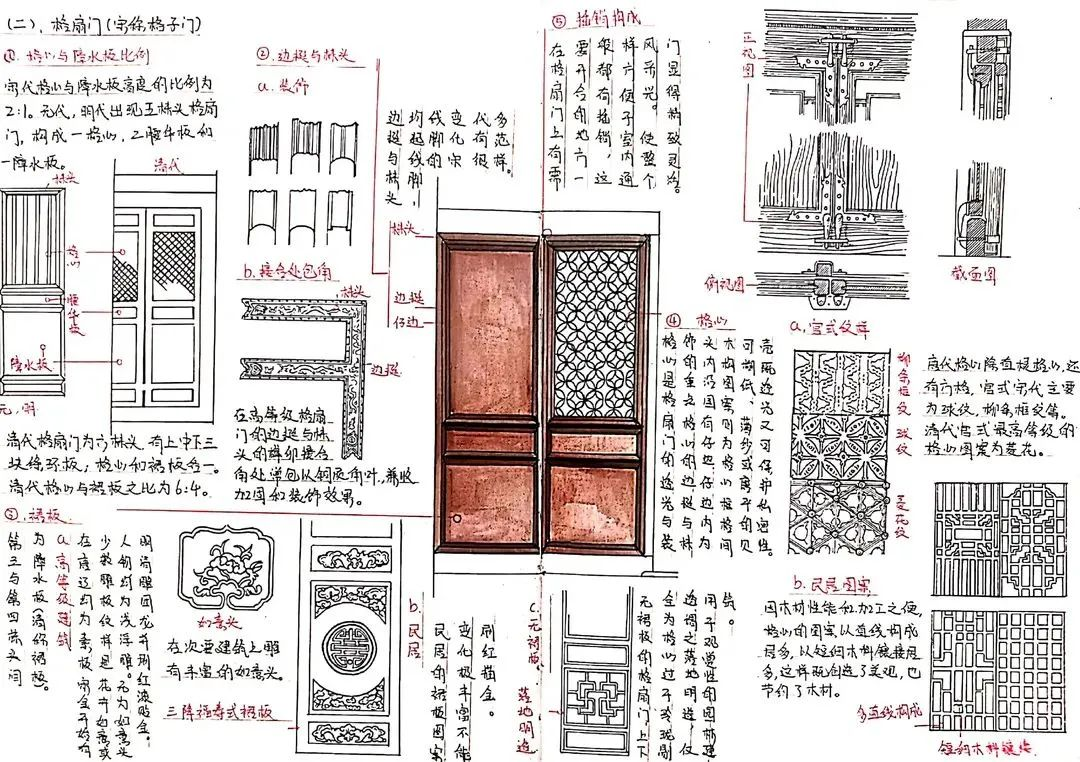 (二)、格扇门(宋称格子门)
① 格心与障水板比例
宋代格心与障水板高度的比例为
2:1。元代,明代出现五抹头格扇
门,构成一格心,二腰华板和
一障水板。
清代
抹头
格心
腰华板
障水板
元,明
清代格扇门为六抹头 有上中下三
块绦环板,格心和裙板各一。
清代格心与裙板之比为6:4。
② 边挺与抹头
a. 装饰
边挺与抹头
均起线脚,
线脚的宋
变化很
代有
多范样。
b. 接合处包角
抹头
边挺
在高等级格扇
门的边挺与抹
头的榫卯接合
角处常包以铜质角叶,兼收
加固和装饰效果。
抹头
边挺
仔边
③ 裙板
第三与第四抹头间
为障水板(清称裙板)。
a.高等级建筑
在唐辽均为素板,宋金开始有
少数雕纹样是花卉如意或
人物均为浅浮雕。元为如意头
明清雕团龙并刷红漆贴金。
如意头
在次要建筑上雕
有丰富的如意头。
三障福寿式裙板
b.民居
民居的裙板图案
变化极丰富不能
刷红描金。
c.无裙板。落地明造
无裙板的格扇门上下
全为格心过于
透谓之落地明造。仅
用于观赏性的园林建
筑。
④ 格心
格心是格扇门的透光与装
饰的重点。格心的边挺与抹
头内沿围有仔边,仔边内为
木构图案,则为格心框格间
可糊纸、薄纱或离子的贝
壳既透光又可保护私密性。
⑤ 插销构成
在格扇门上有需
要开合的地六一
般都有插销,这
样六便子室内通
风采光。使整个
门显得精致灵活。
正视图
俯视图
截面图
a.宫式纹样
柳条框纹
球纹
菱花纹
唐代格心除直棂格心,还
有方格,宫式宋代主要
为球纹,柳条框纹等。
清代宫式最高等级的
格心图案为菱花。
b.民居图案
因木材性能和加工之便,
格心的图案以直线构成
居多,以短细木料镶接居
多,这样既创造了美观,也
节约了木材。
多直线构成
短细木料镶接